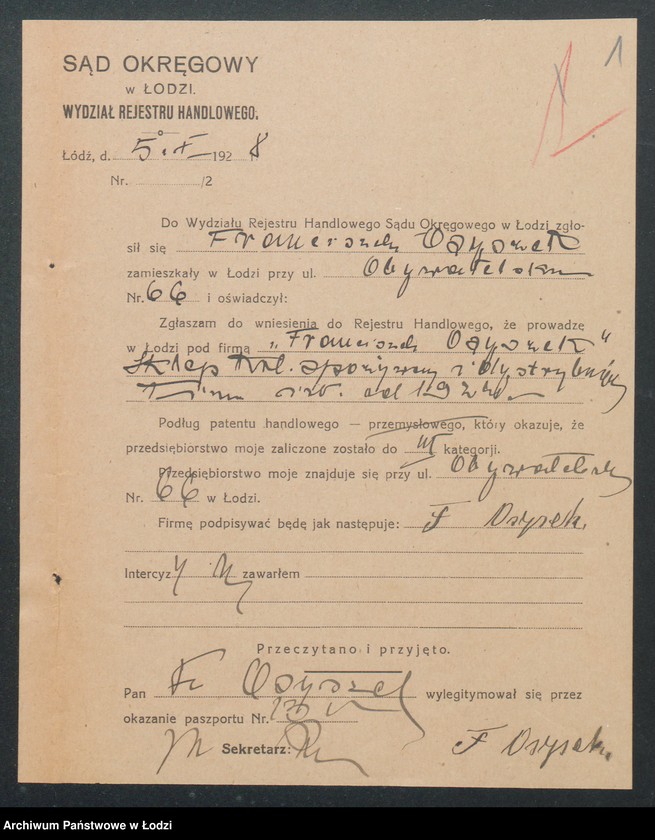 1
SĄD OKRĘGOWY
w ŁODZI.
WYDZIAŁ REJESTRU HANDLOWEGO.
Łódź, d. 5. X 1928
Nr. /2
Do Wydziału Rejestru Handlowego Sądu Okręgowego w Łodzi zgło-
sił się Franciszek Osyszek
zamieszkały w Łodzi przy ul. Obywatelska
Nr. 66 i oświadczył:
Zgłaszam do wniesienia do Rejestru Handlowego, że prowadzę
w Łodzi pod firmą „Franciszek Osyszek"
Sklep spożywczy i dystrybucję
od 192
Podług patentu handlowego — przemysłowego, który okazuje, że
przedsiębiorstwo moje zaliczone zostało do III kategorji.
Przedsiębiorstwo moje znajduje się przy ul. Obywatelska
Nr. 66 w Łodzi.
Firmę podpisywać będę jak następuje: F Osysek.
Intercyzy zawarłem
Przeczytano i przyjęto.
Pan Fr Osyszek wylegitymował się przez
okazanie paszportu Nr.
Sekretarz: F Osysek
Archiwum Państwowe w Łodzi